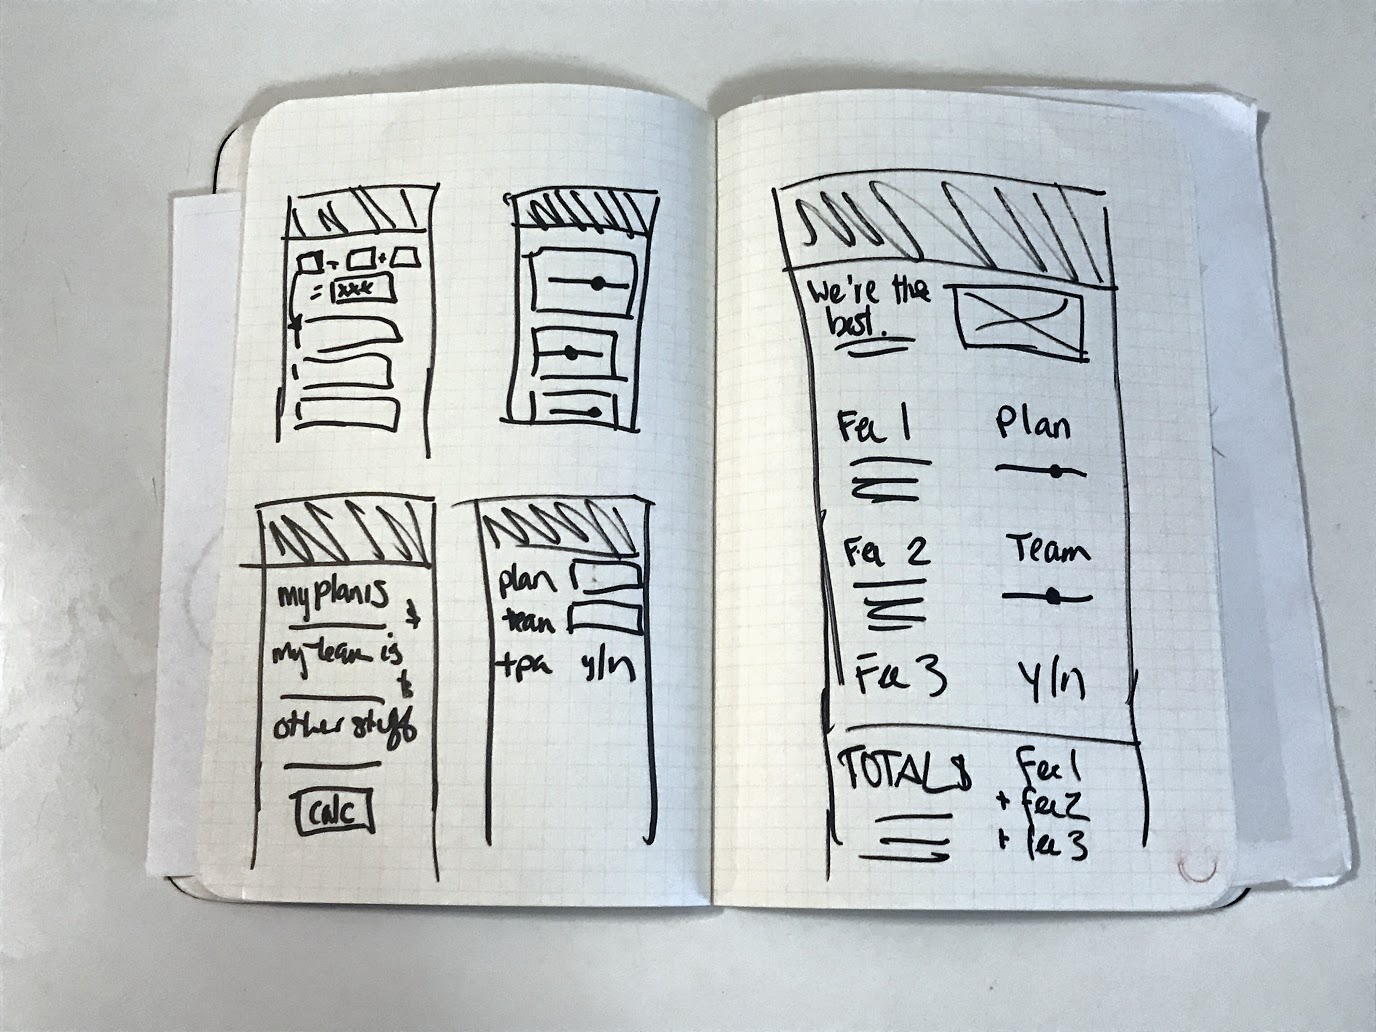 = xxx
my plan is
my team is
other stuff
calc
plan
team
+pa y/n
We're the
best.
Fee 1 Plan
Fee 2 Team
Fee 3 y/n
TOTALS Fee 1
+ fee 2
+ fee 3